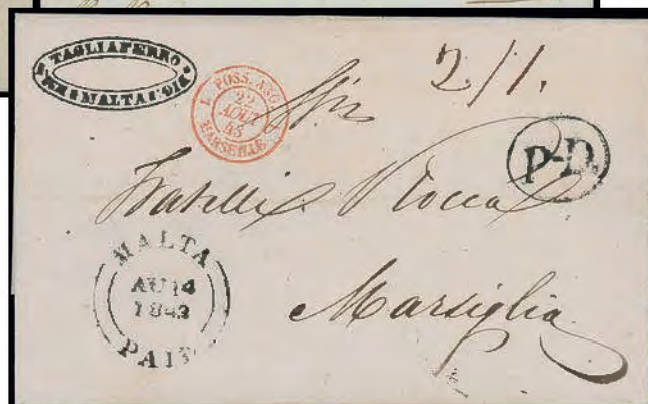 TAGLIAFERRO
MALTA
2/1.
POSS. ANG.
22
AOUT
43
MARSEILLE
P-D.
Fratelli Rocca
MALTA
AU 14
1843
PAID
Marsiglia